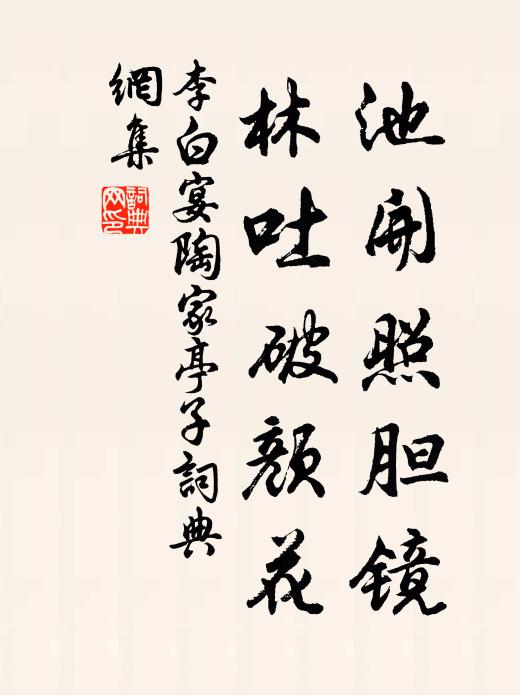 池开照胆镜
林吐破颜花
李白宴陶家亭子詞典
網集
詞典网印